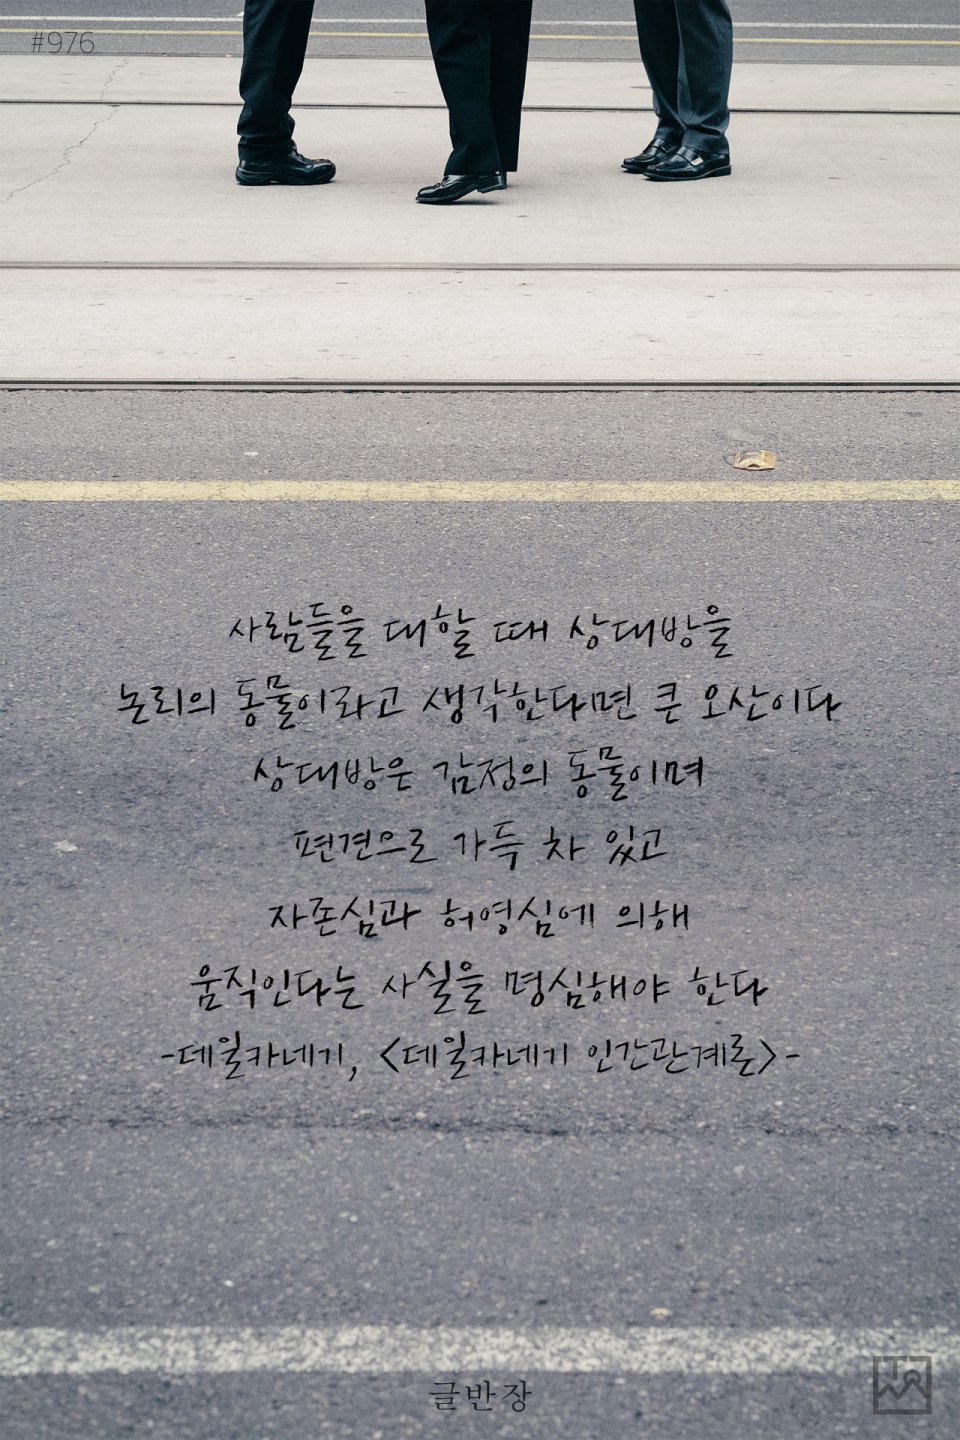 #976
사람들을 대할 때 상대방을
논리의 동물이라고 생각한다면 큰 오산이다
상대방은 감정의 동물이며
편견으로 가득 차 있고
자존심과 허영심에 의해
움직인다는 사실을 명심해야 한다
-데일카네기, <데일카네기 인간관계론>-
글반장